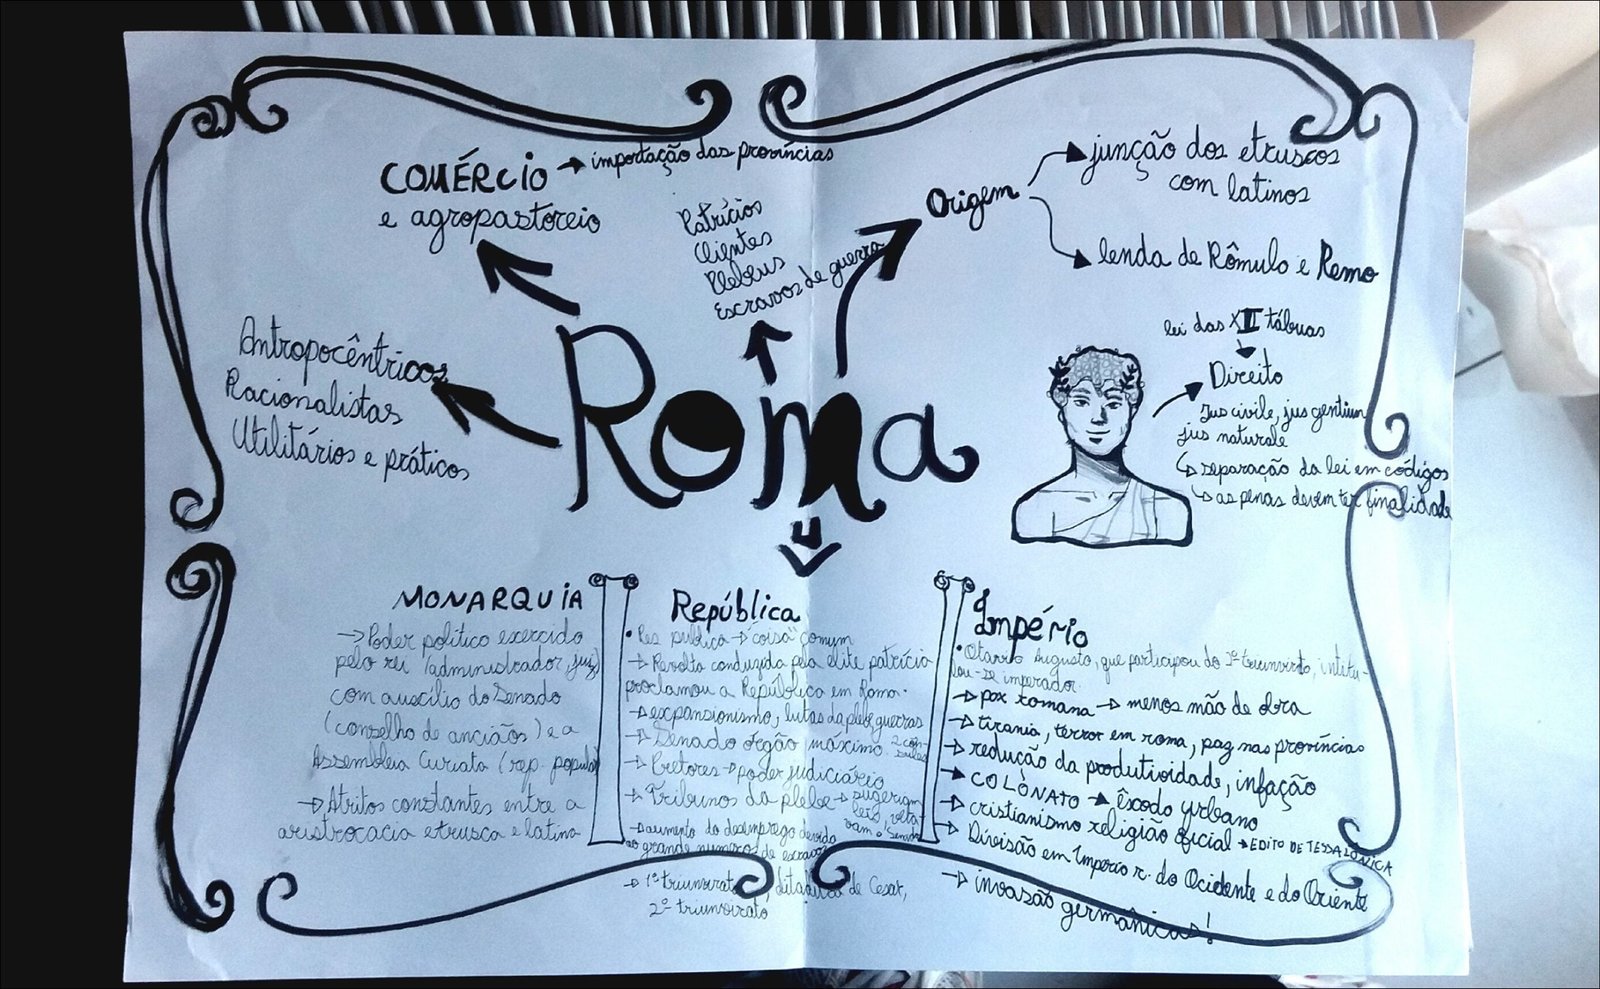 COMÉRCIO → importação das províncias
e agropastoreio
Patrícios
Clientes
Plebeus
Escravos de guerra
Origem
junção dos etruscos
com latinos
lenda de Rômulo e Remo
Antropocêntricos
Racionalistas
Utilitários e práticos
Roma
lei das XII tábuas
Direito
Jus civile, jus gentium
jus naturale
separação da lei em códigos
as penas devem ter finalidade
MONARQUIA
→ Poder político exercido
pelo rei (administrador, juiz)
com auxílio do Senado
(conselho de anciãos) e a
Assembleia Curiata (rep. popular)
→ Atritos constantes entre a
aristrocacia etrusca e latina
República
• Res publica → "coisa" comum
→ Revolta conduzida pela elite patrícia
proclamou a República em Roma.
→ expansionismo, lutas da plebe, guerras
→ Senado órgão máximo. 2 cônsules
→ Pretores → poder judiciário
→ Tribunos da plebe → sugeriam
leis, veta
vam o Senado
→ aumento do desemprego devido
ao grande numero de escravos
→ 1º triunvirato, ditadura de Cesar,
2º triunvirato
Império
• Otavio Augusto, que participou do 2º triunvirato, intitu-
lou-se imperador.
→ pax romana → menos mão de obra
→ tirania, terror em roma, paz nas províncias
→ redução da produtividade, infação
→ COLÔNATO → êxodo urbano
→ cristianismo religião oficial → EDITO DE TESSALÔNICA
→ Divisão em Imperio r. do Ocidente e do Oriente
→ invasão germânicas!